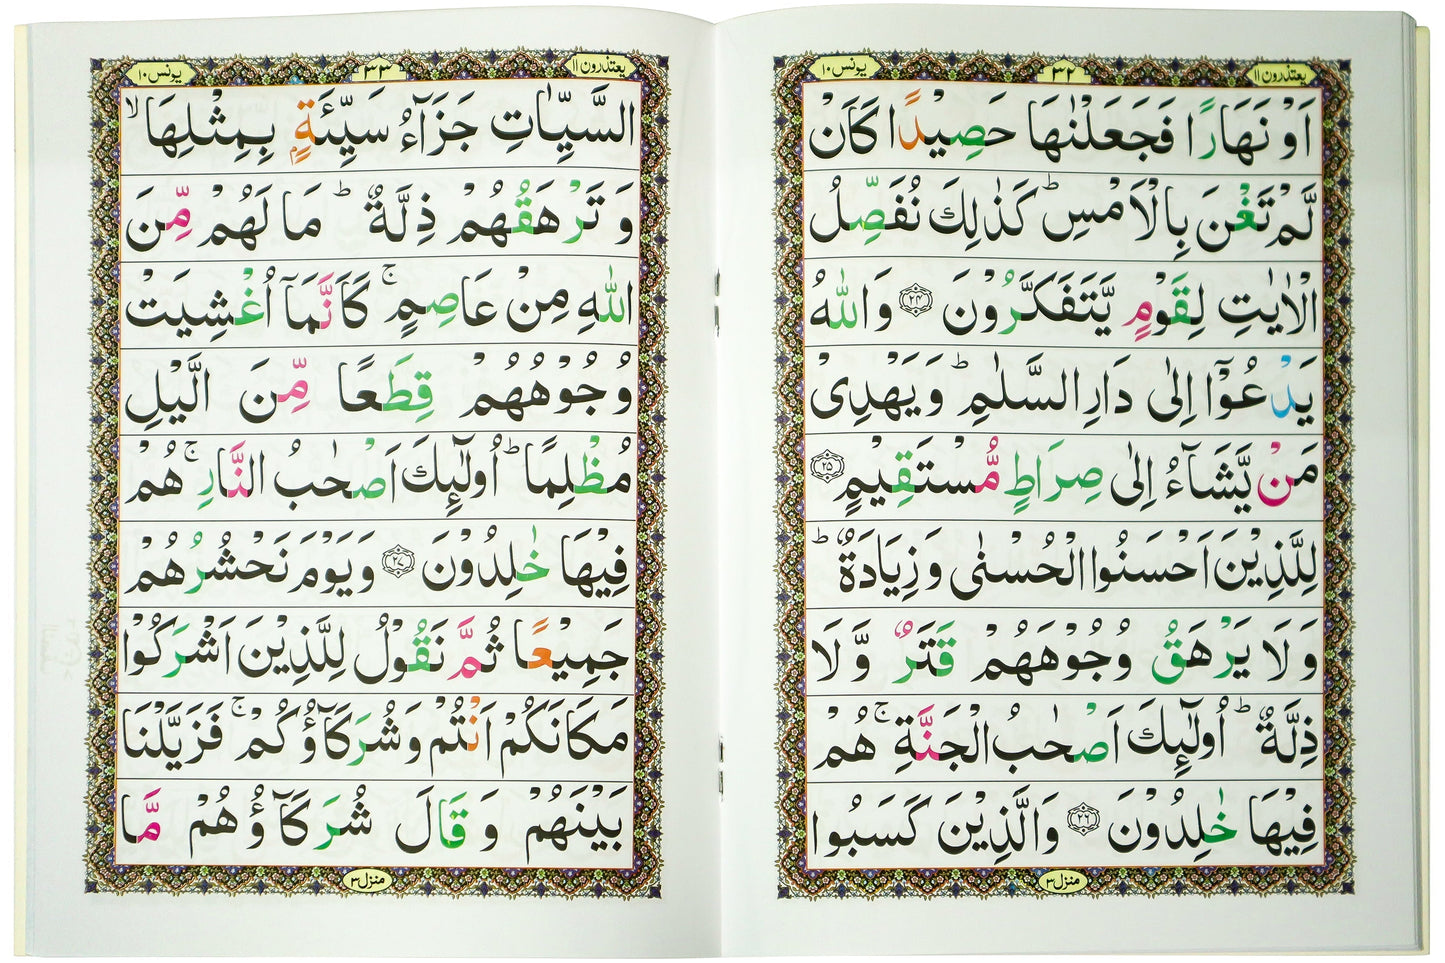 یعتذرون ۱۱
۳۲
یونس ۱۰
اَوْ نَهَارًا فَجَعَلْنٰهَا حَصِیْدًا كَاَنْ
لَّمْ تَغْنَ بِالْاَمْسِ ؕ كَذٰلِكَ نُفَصِّلُ
الْاٰیٰتِ لِقَوْمٍ یَّتَفَكَّرُوْنَ ۲۴ وَ اللّٰهُ
یَدْعُوْۤا اِلٰى دَارِ السَّلٰمِ ؕ وَ یَهْدِیْ
مَنْ یَّشَآءُ اِلٰى صِرَاطٍ مُّسْتَقِیْمٍ ۲۵
لِلَّذِیْنَ اَحْسَنُوا الْحُسْنٰى وَ زِیَادَةٌ ؕ
وَ لَا یَرْهَقُ وُجُوْهَهُمْ قَتَرٌ وَّ لَا
ذِلَّةٌ ؕ اُولٰٓئِكَ اَصْحٰبُ الْجَنَّةِ ۚ هُمْ
فِیْهَا خٰلِدُوْنَ ۲۶ وَ الَّذِیْنَ كَسَبُوا
منزل ۳
یعتذرون ۱۱
۳۳
یونس ۱۰
السَّیِّاٰتِ جَزَآءُ سَیِّئَةٍۭ بِمِثْلِهَا ۙ
وَ تَرْهَقُهُمْ ذِلَّةٌ ؕ مَا لَهُمْ مِّنَ
اللّٰهِ مِنْ عَاصِمٍ ۚ كَاَنَّمَاۤ اُغْشِیَتْ
وُجُوْهُهُمْ قِطَعًا مِّنَ الَّیْلِ
مُظْلِمًا ؕ اُولٰٓئِكَ اَصْحٰبُ النَّارِ ۚ هُمْ
فِیْهَا خٰلِدُوْنَ ۲۷ وَ یَوْمَ نَحْشُرُهُمْ
جَمِیْعًا ثُمَّ نَقُوْلُ لِلَّذِیْنَ اَشْرَكُوْا
مَكَانَكُمْ اَنْتُمْ وَ شُرَكَآؤُكُمْ ۚ فَزَیَّلْنَا
بَیْنَهُمْ وَ قَالَ شُرَكَآؤُهُمْ مَّا
منزل ۳